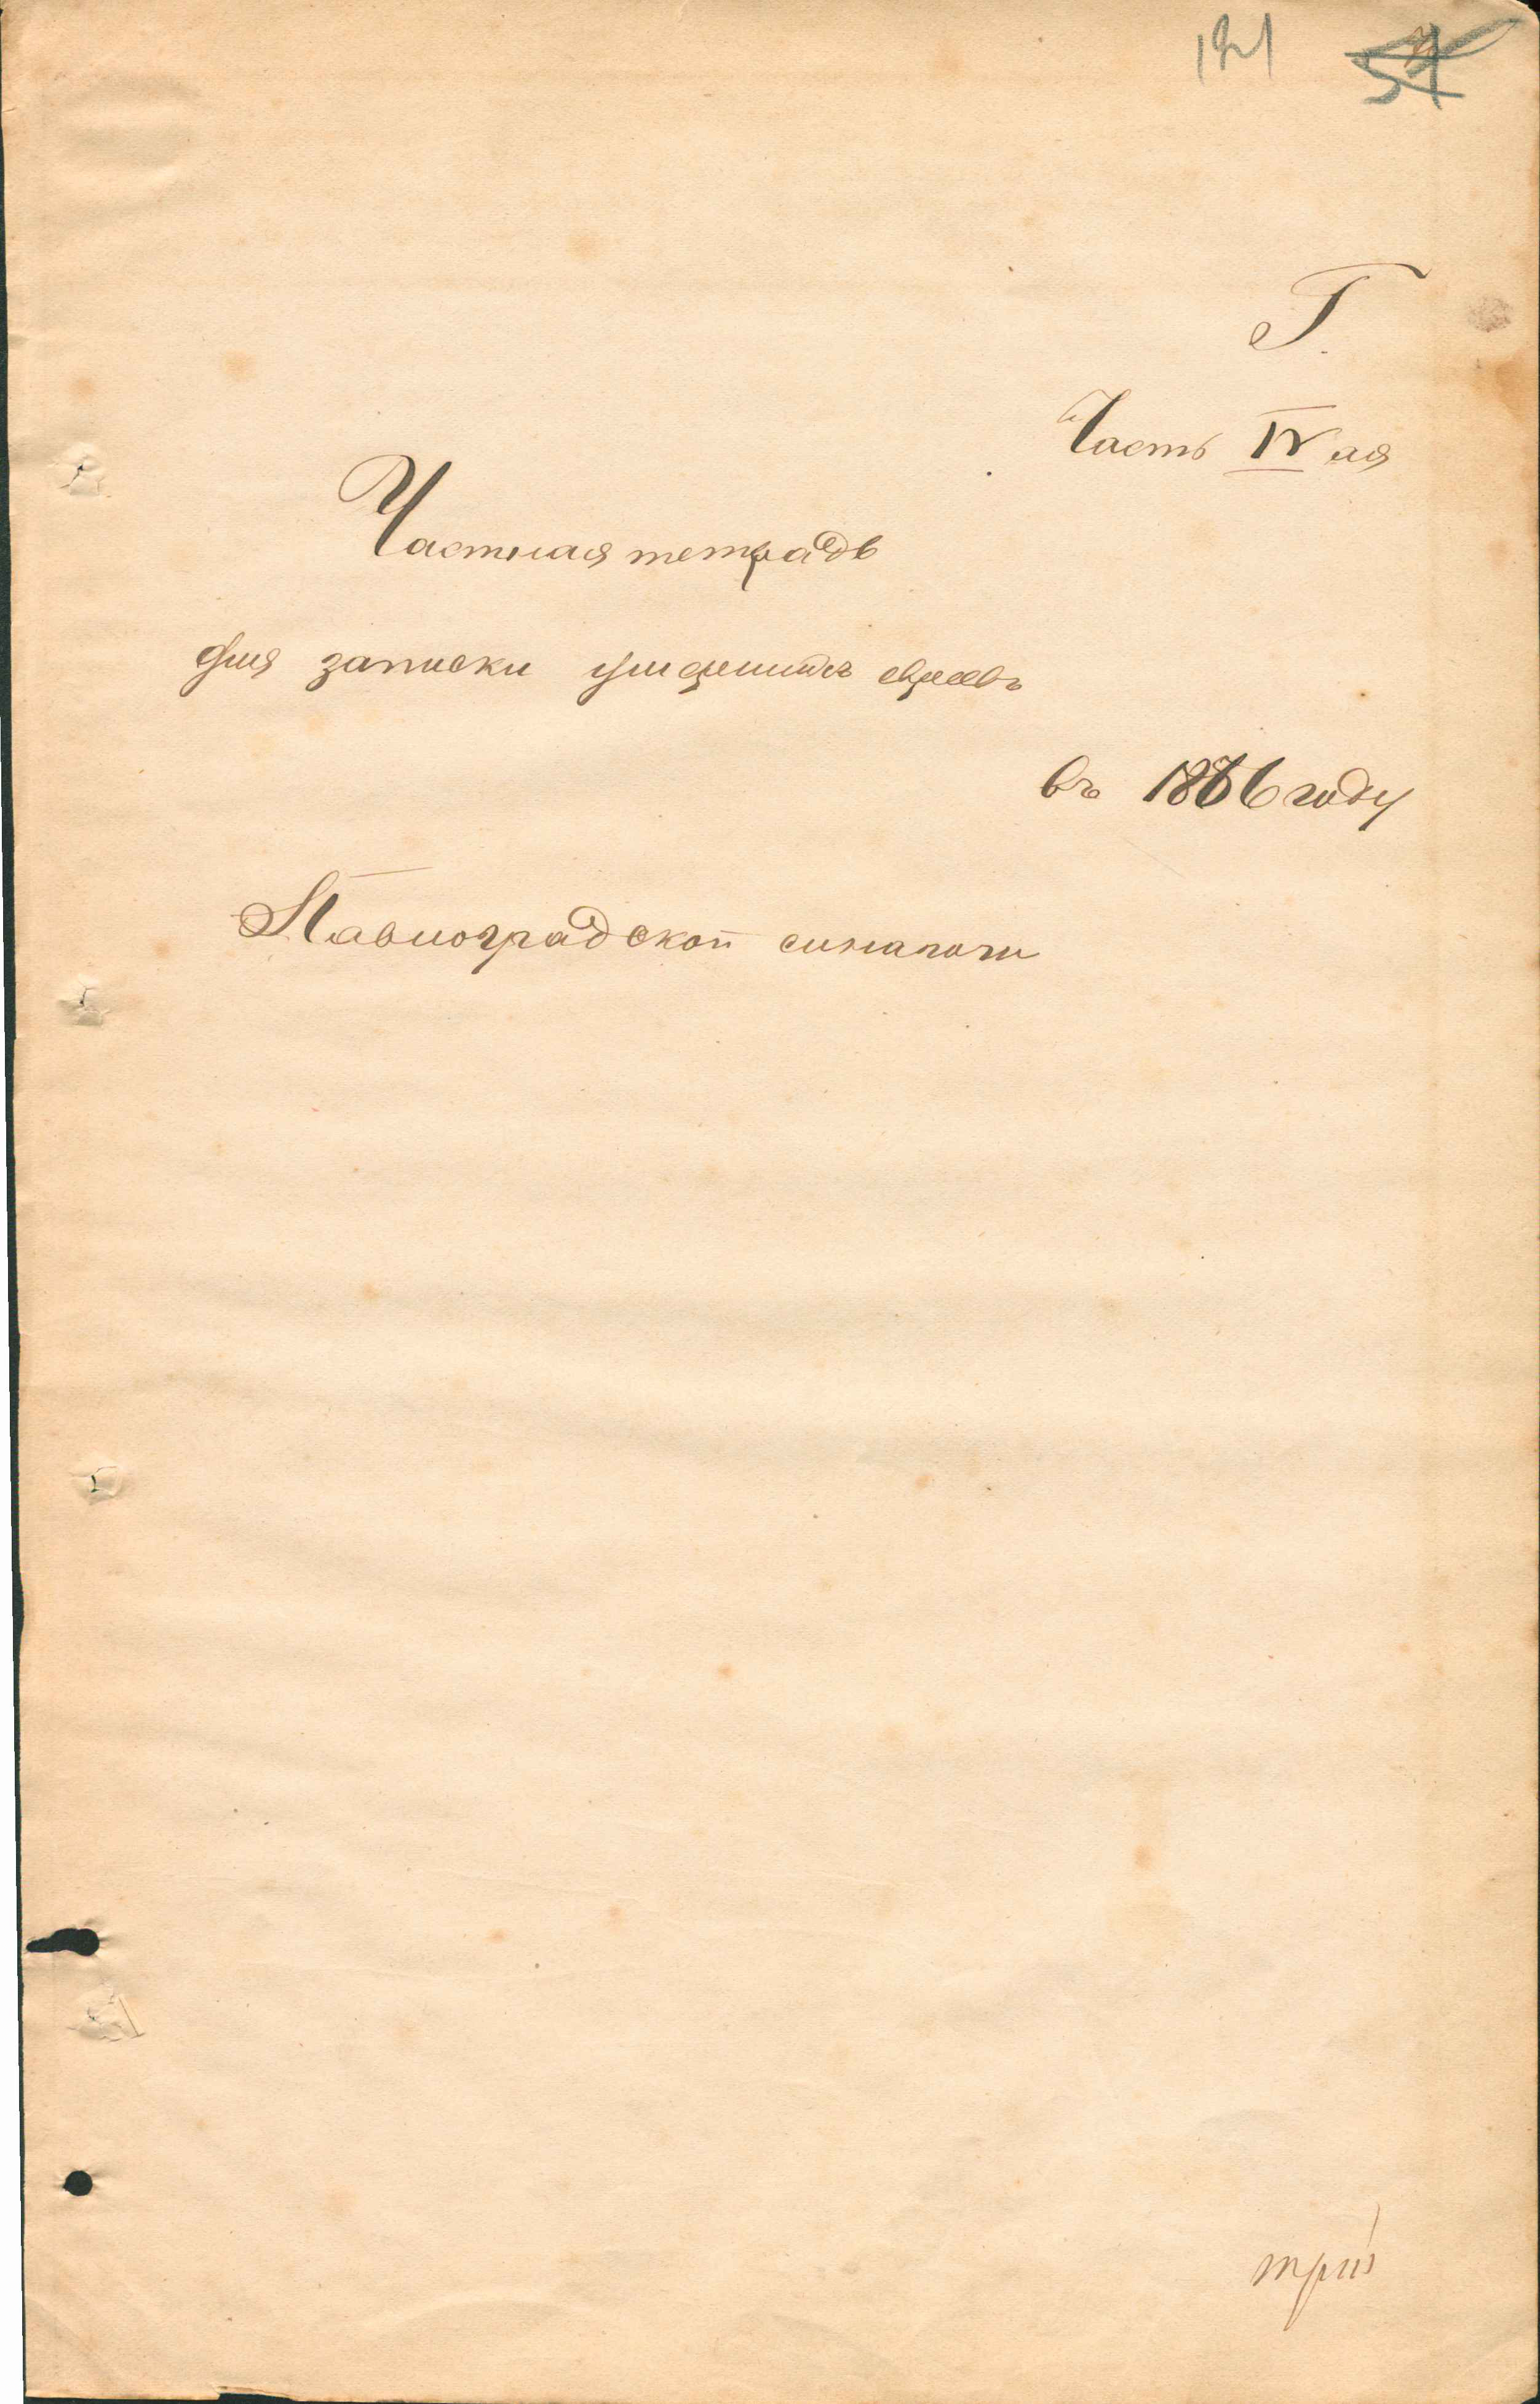 121
Г.
Часть IV ая
Частная тетрадь
для записки умершихъ евреевъ
въ 1886 году
Павлоградской синагоги